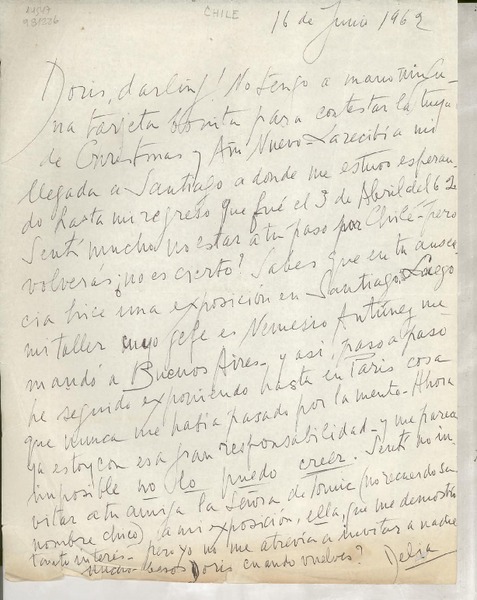 CHILE
16 de Junio 1962
Doris, darling! No tengo a mano ningu-
na tarjeta bonita para contestar la tuya
de Christmas y Año Nuevo - La recibí a mi
llegada a Santiago a donde me estuvo esperan-
do hasta mi regreso que fué el 3 de Abril del 62
Sentí mucho no estar a tu paso por Chile - pero
volverás ¿no es cierto? Sabes que en tu ausen-
cia hice una exposición en Santiago. Luego
mi taller cuyo gefe es Nemesio Antúnez me
mandó a Buenos Aires - y así, paso a paso
he seguido exponiendo hasta en Paris cosa
que nunca me había pasado por la mente - Ahora
ya estoy con esa gran responsabilidad - y me parece
imposible no lo puedo creer. Sentí no in-
vitar a tu amiga la Señora de Tomic (no recuerdo su
nombre chico), a mi exposición, ella, que me demostró
tanto interes - pero yo no me atrevía a invitar a nadie
muchos besos Doris cuando vuelves? Delia